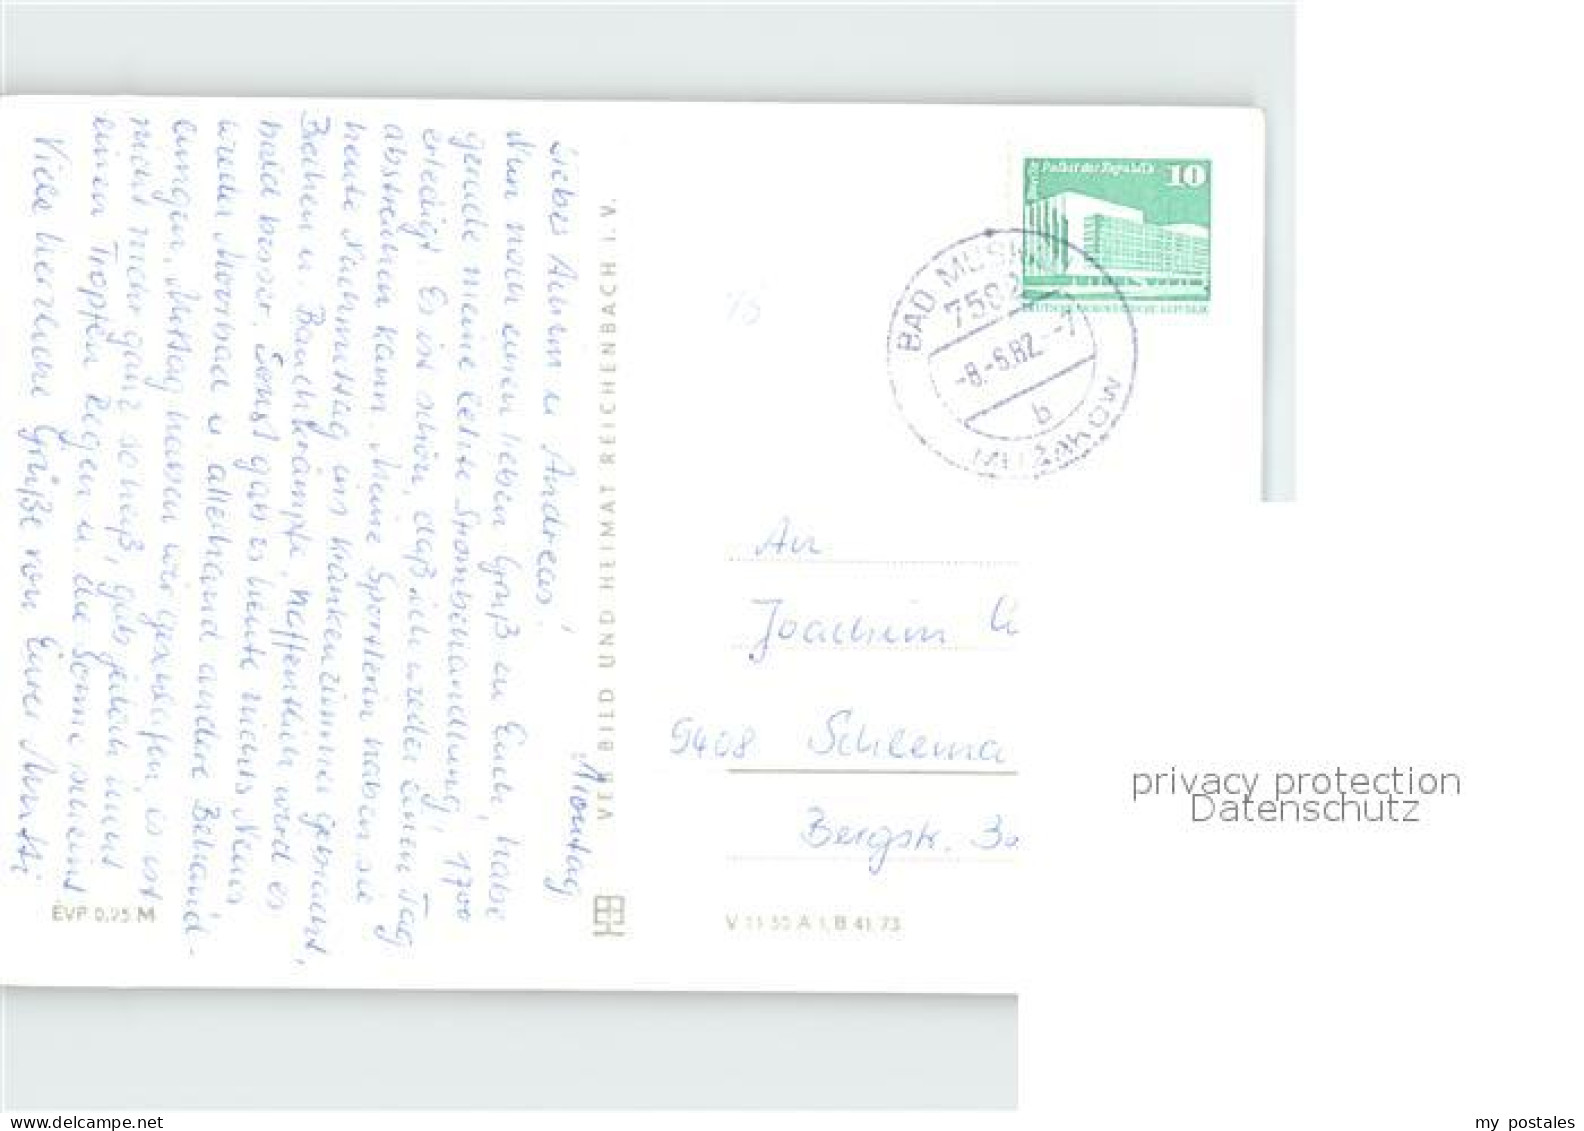 Montag,
Liebes Achim u. Andreas!
Nun noch einen lieben Gruß zu Euch, habe
gerade meine letzte Strombehandlung,
erledigt. Es ist schön, daß ich wieder einen Tag
abstreichen kann. Meine Sportlerin haben sie
heute Nachmittag ins Krankenzimmer gebracht,
Rücken u. Bauchkrämpfe, hoffentlich wird es
bald besser. Sonst gab es heute nichts Neues,
wieder Moorbad u. allerhand andere Behand-
lungen, Mittag haben wir geschlafen, es ist
nicht mehr ganz so heiß, gab jedoch
einen Tropfen Regen u. die Sonne scheint
Viele herzliche Grüße von Eurer Mutti
EVP 0,25 M
VEB BILD UND HEIMAT REICHENBACH I. V.
V 11 50 A 1, B 41/73
Palast der Republik
10
DEUTSCHE DEMOKRATISCHE REPUBLIK
BAD MUSKAU
7582
-8.-6.82.--7
b
An
Joachim
9408 Schlema
Bergstr.
privacy protection
Datenschutz
www.delcampe.net
my postales